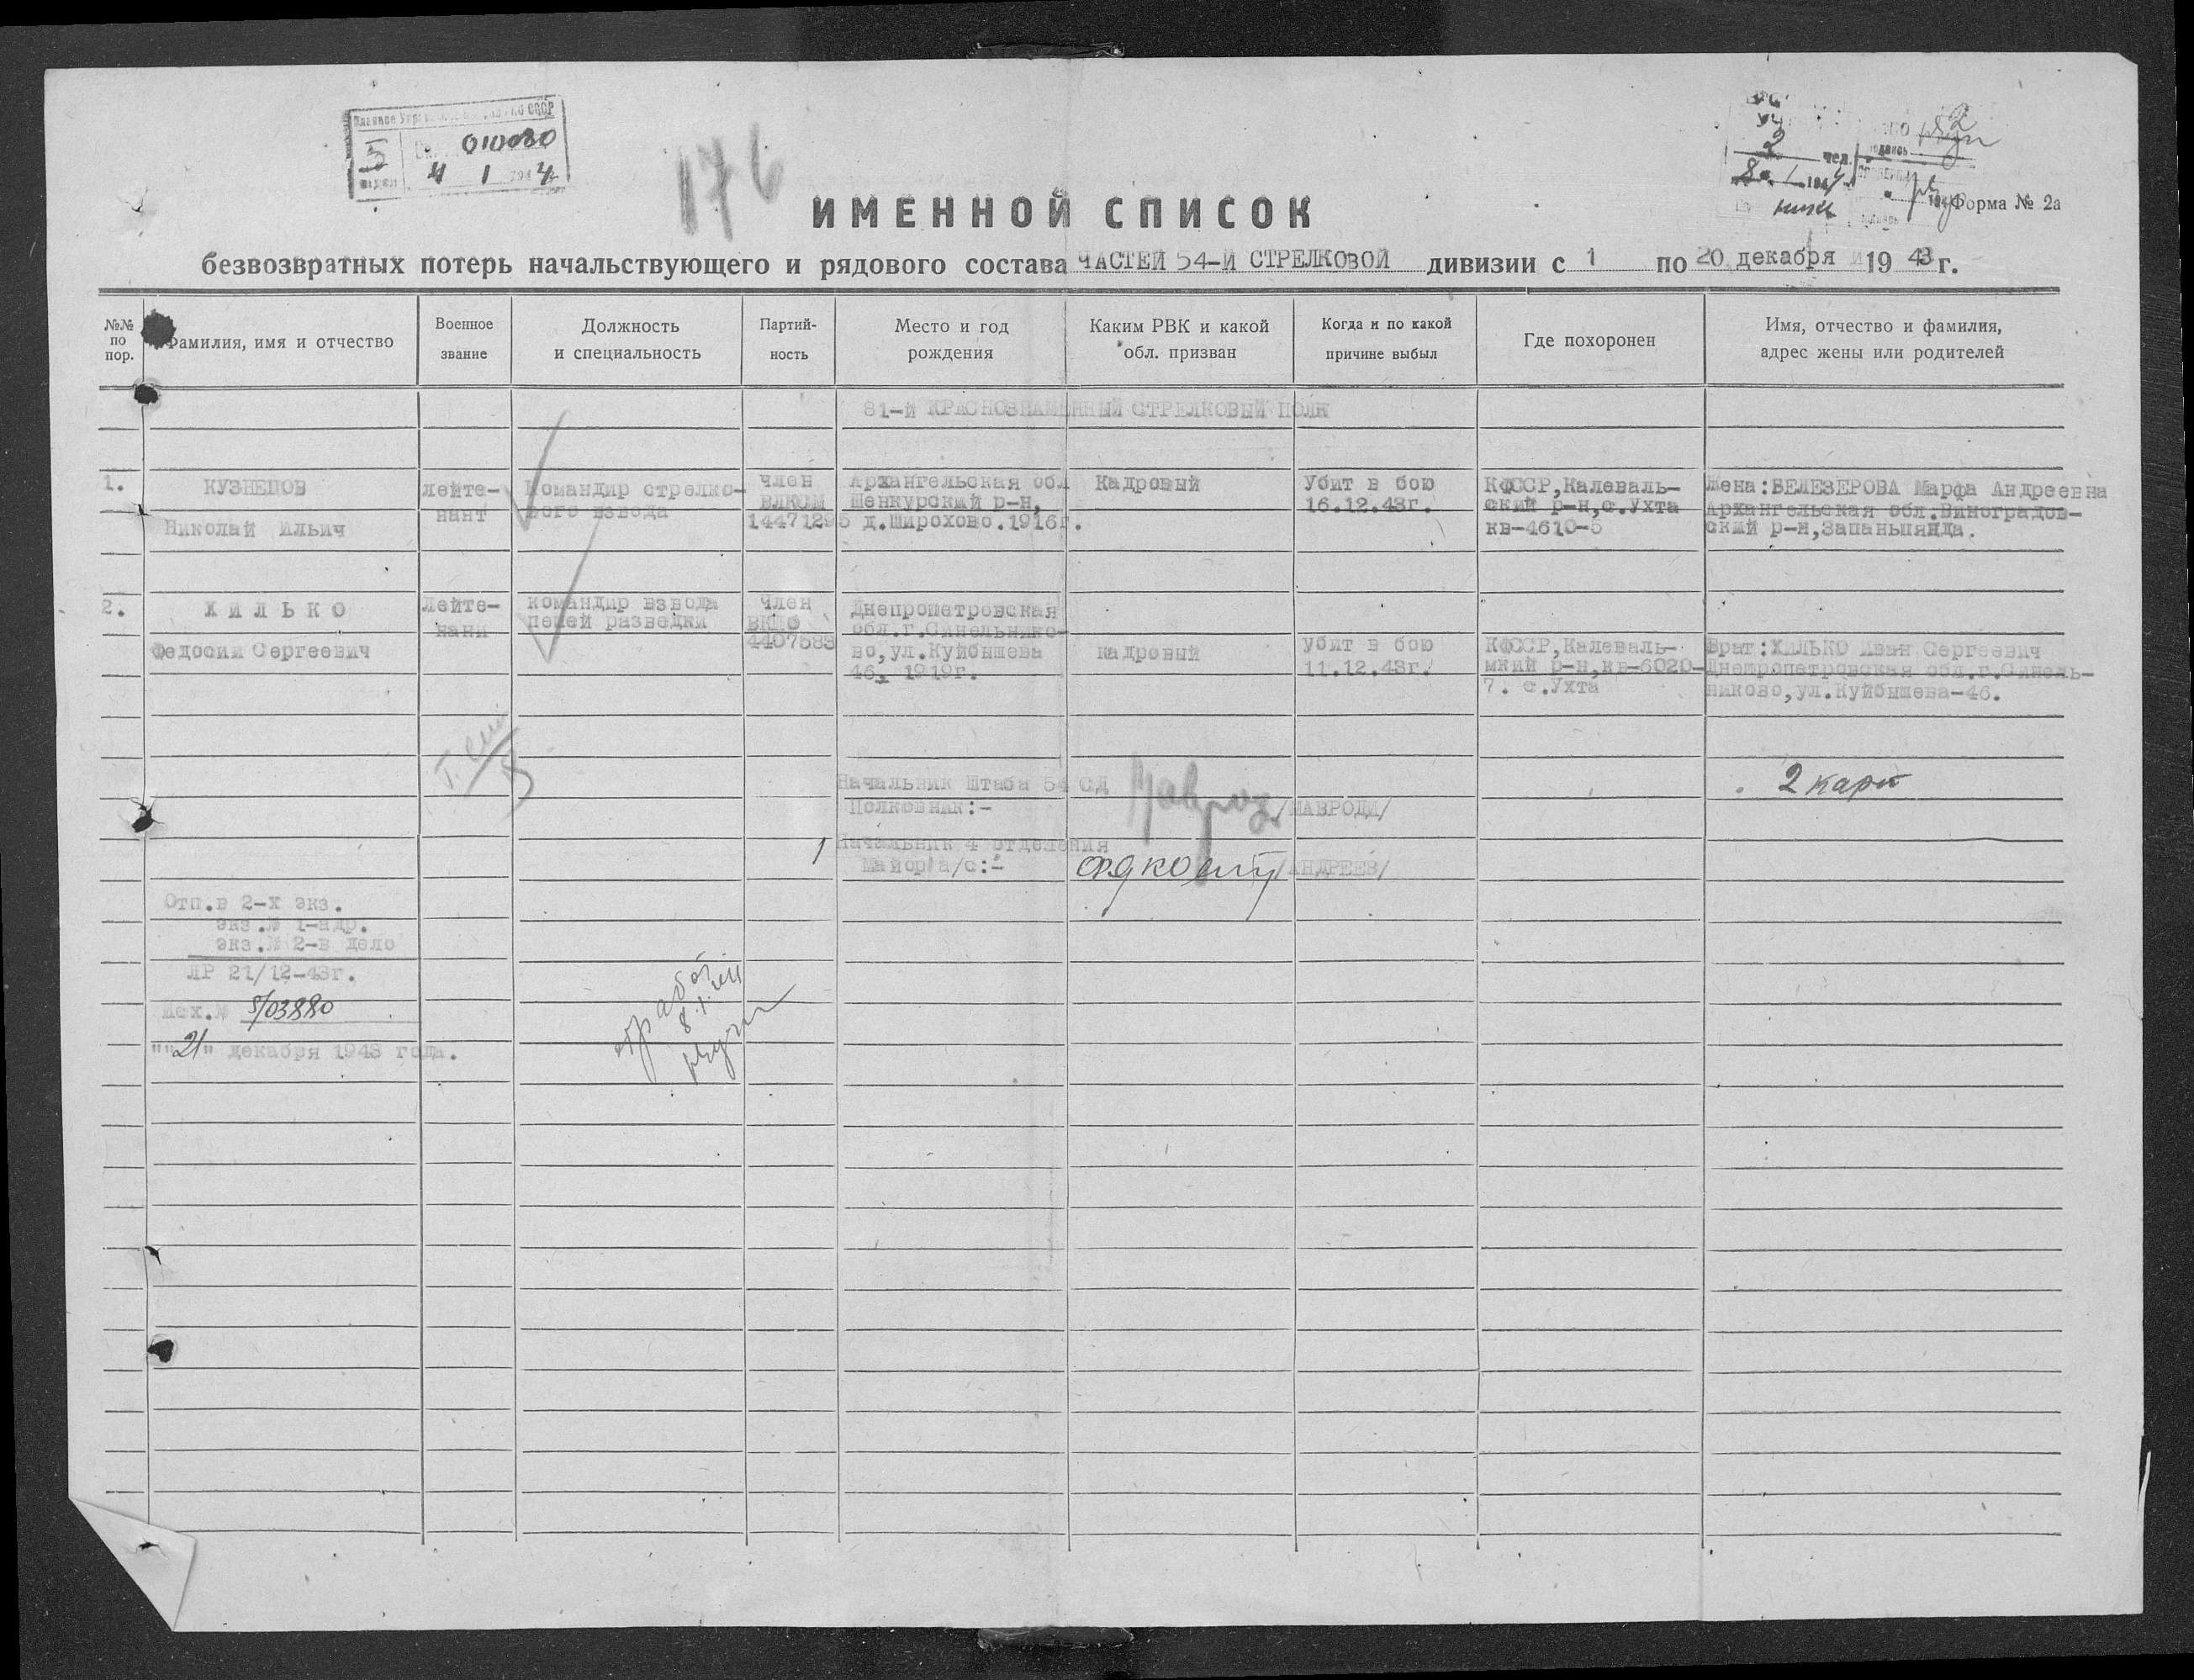 010080
4 1 1944
176
2
чел.
8 1 1944
Форма № 2а
ИМЕННОЙ СПИСОК
безвозвратных потерь начальствующего и рядового состава ЧАСТЕЙ 54-Й СТРЕЛКОВОЙ дивизии с 1 по 20 декабря 1943 г.
№№ по пор.
Фамилия, имя и отчество
Военное звание
Должность и специальность
Партий-
ность
Место и год рождения
Каким РВК и какой обл. призван
Когда и по какой причине выбыл
Где похоронен
Имя, отчество и фамилия, адрес жены или родителей
81-й КРАСНОЗНАМЕННЫЙ СТРЕЛКОВЫЙ ПОЛК
1.
КУЗНЕЦОВ
Николай Ильич
лейте-
нант
Командир стрелко-
вого взвода
член
ВЛКСМ
14471295
Архангельская обл
Шенкурский р-н,
д.Широхово.1916г.
Кадровый
Убит в бою
16.12.43г.
КФССР,Калеваль-
ский р-н,с.Ухта
кв-4610-5
Жена:БЕЛЕЗЕРОВА Марфа Андреевна
Архангельская обл.Виноградов-
ский р-н,Запаньпянда.
2.
ХИЛЬКО
Федосий Сергеевич
Лейте-
нани
командир взвода
пешей разведки
Член
ВКПб
4407583
Днепропетровская
обл.г.Синельнико-
во,ул.Куйбышева
46, 1919г.
кадровый
Убит в бою
11.12.43г.
КФССР,Калеваль-
мкий р-н,кв-6020-
7. с.Ухта
Брат:ХИЛЬКО Иван Сергеевич
Днепропетровская обл.г.Синель-
никово,ул.Куйбышева-46.
Начальник Штаба 54 СД
Полковник:-
/МАВРОДИ/
2 карт
Начальник 4 отделения
Майор а/с:-
/АНДРЕЕВ/
Отп.в 2-х экз.
экз.№ 1-адр.
экз.№ 2-в дело
ЛР 21/12-43г.
Исх.№ 5/03880
"21" декабря 1943 года.
8.1.44